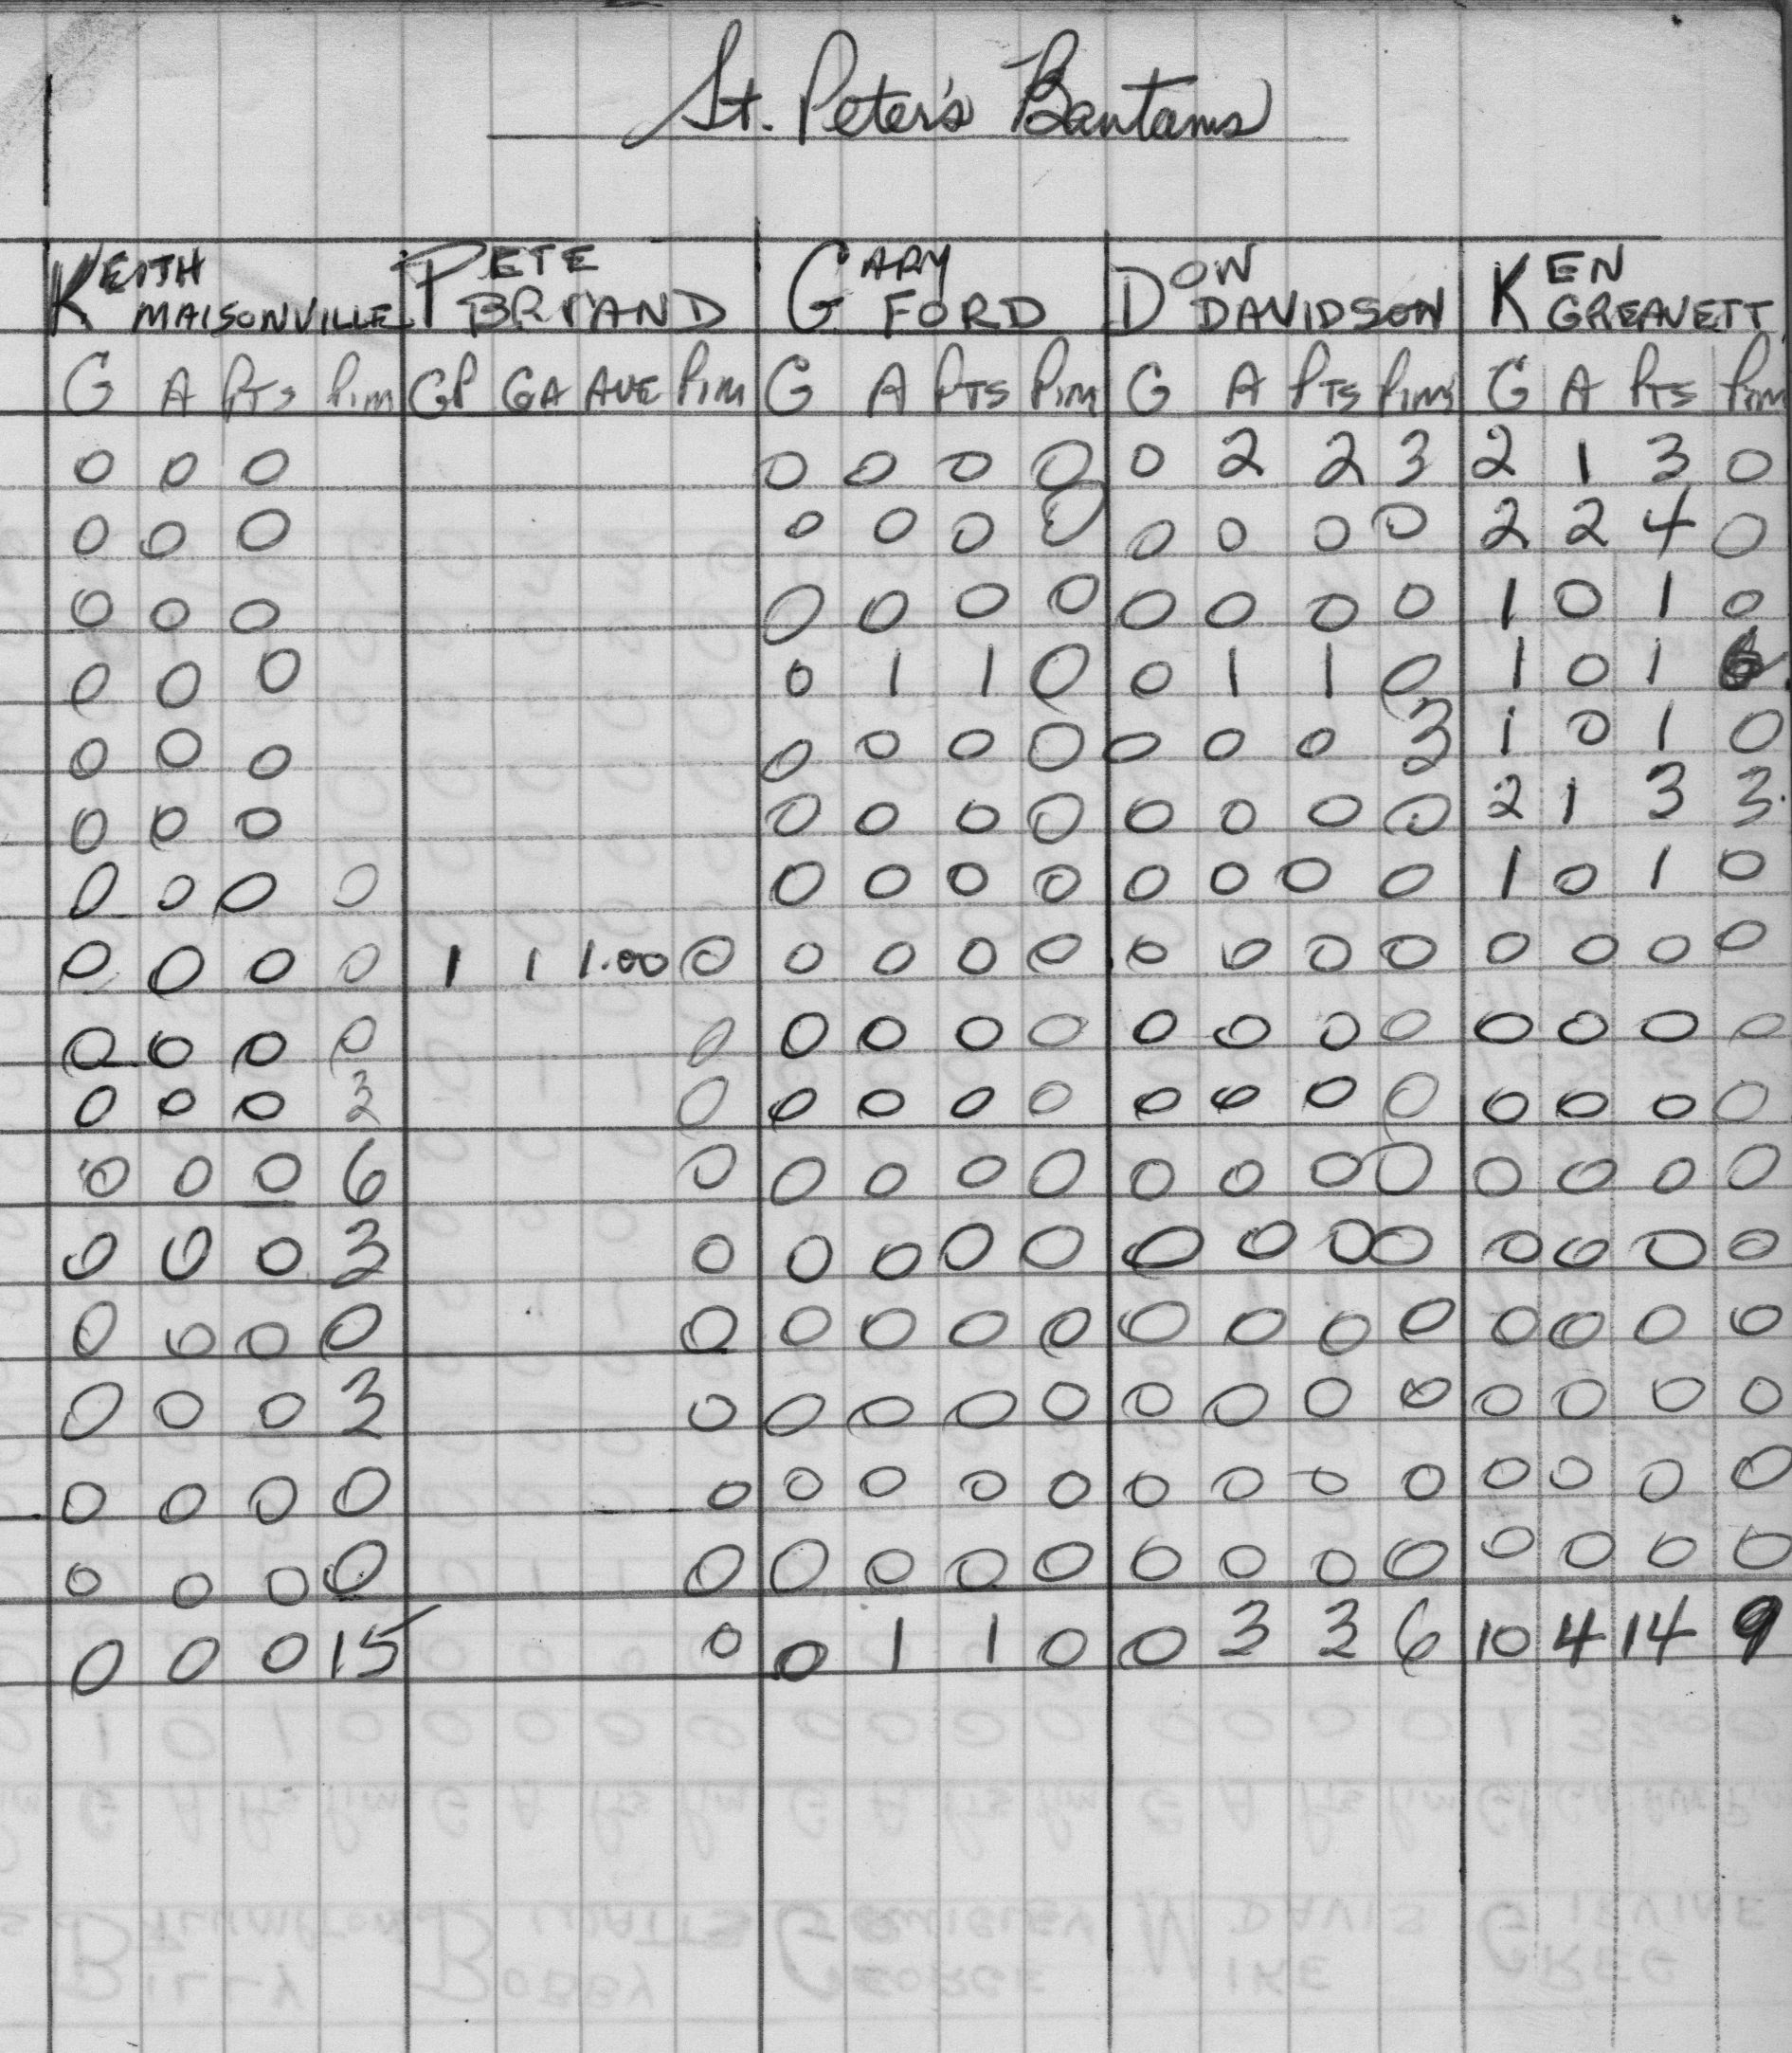 St. Peter's Bantams
KEITH MAISONVILLE PETE BRIAND GARY FORD DOW DAVIDSON KEN GREAVETT
G A Pts Pim GP GA AVE Pim G A PTS Pim G A PTS Pim G A Pts Pim
0 0 0 0 0 0 0 0 2 2 3 2 1 3 0
0 0 0 0 0 0 0 0 0 0 0 2 2 4 0
0 0 0 0 0 0 0 0 0 0 0 1 0 1 0
0 0 0 0 1 1 0 0 1 1 0 1 0 1 6
0 0 0 0 0 0 0 0 0 0 3 1 0 1 0
0 0 0 0 0 0 0 0 0 0 0 2 1 3 3
0 0 0 0 0 0 0 0 0 0 0 0 1 0 1 0
0 0 0 0 1 1 1.00 0 0 0 0 0 0 0 0 0 0 0 0 0
0 0 0 0 0 0 0 0 0 0 0 0 0 0 0 0 0
0 0 0 3 0 0 0 0 0 0 0 0 0 0 0 0 0
0 0 0 6 0 0 0 0 0 0 0 0 0 0 0 0 0
0 0 0 3 0 0 0 0 0 0 0 0 0 0 0 0 0
0 0 0 0 0 0 0 0 0 0 0 0 0 0 0 0 0
0 0 0 3 0 0 0 0 0 0 0 0 0 0 0 0 0
0 0 0 0 0 0 0 0 0 0 0 0 0 0 0 0 0
0 0 0 0 0 0 0 0 0 0 0 0 0 0 0 0 0
0 0 0 15 0 0 1 1 0 0 3 3 6 10 4 14 9